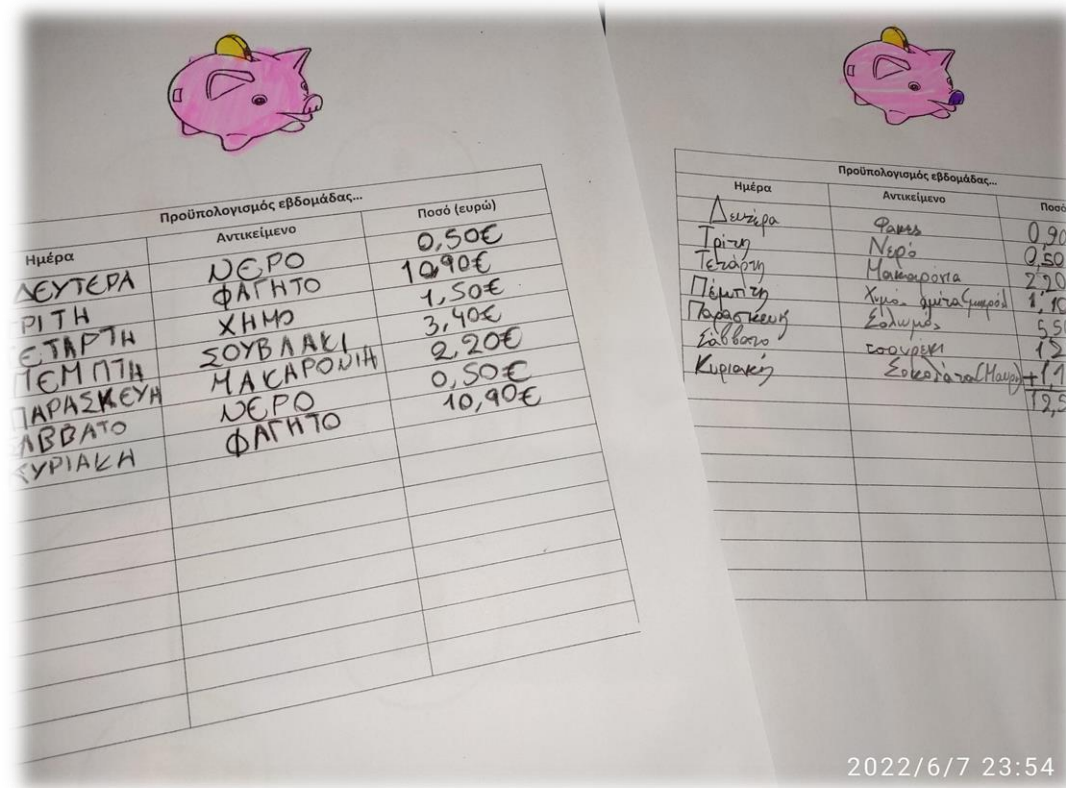 Προϋπολογισμός εβδομάδας...
Ημέρα Αντικείμενο Ποσό (ευρώ)
ΔΕΥΤΕΡΑ ΝΕΡΟ 0,50€
ΡΙΤΗ ΦΑΓΗΤΟ 10,90€
ΕΤΑΡΤΗ ΧΗΜΟ 1,50€
ΠΕΜΠΤΗ ΣΟΥΒΛΑΚΙ 3,40€
ΠΑΡΑΣΚΕΥΗ ΜΑΚΑΡΟΝΙΑ 2,20€
ΑΒΒΑΤΟ ΝΕΡΟ 0,50€
ΚΥΡΙΑΚΗ ΦΑΓΗΤΟ 10,90€
Προϋπολογισμός εβδομάδας...
Ημέρα Αντικείμενο Ποσό
Δευτέρα Φακές 0,90
Τρίτη Νερό 0,50
Τετάρτη Μακαρόνια 2,20
Πέμπτη Χυμό 1,10
Παρασκευή Σολωμός 5,50
Σάββατο τσουρέκι
Κυριακή Σοκολάτα (Μαύρη) +1,1
12,5
2022/6/7 23:54